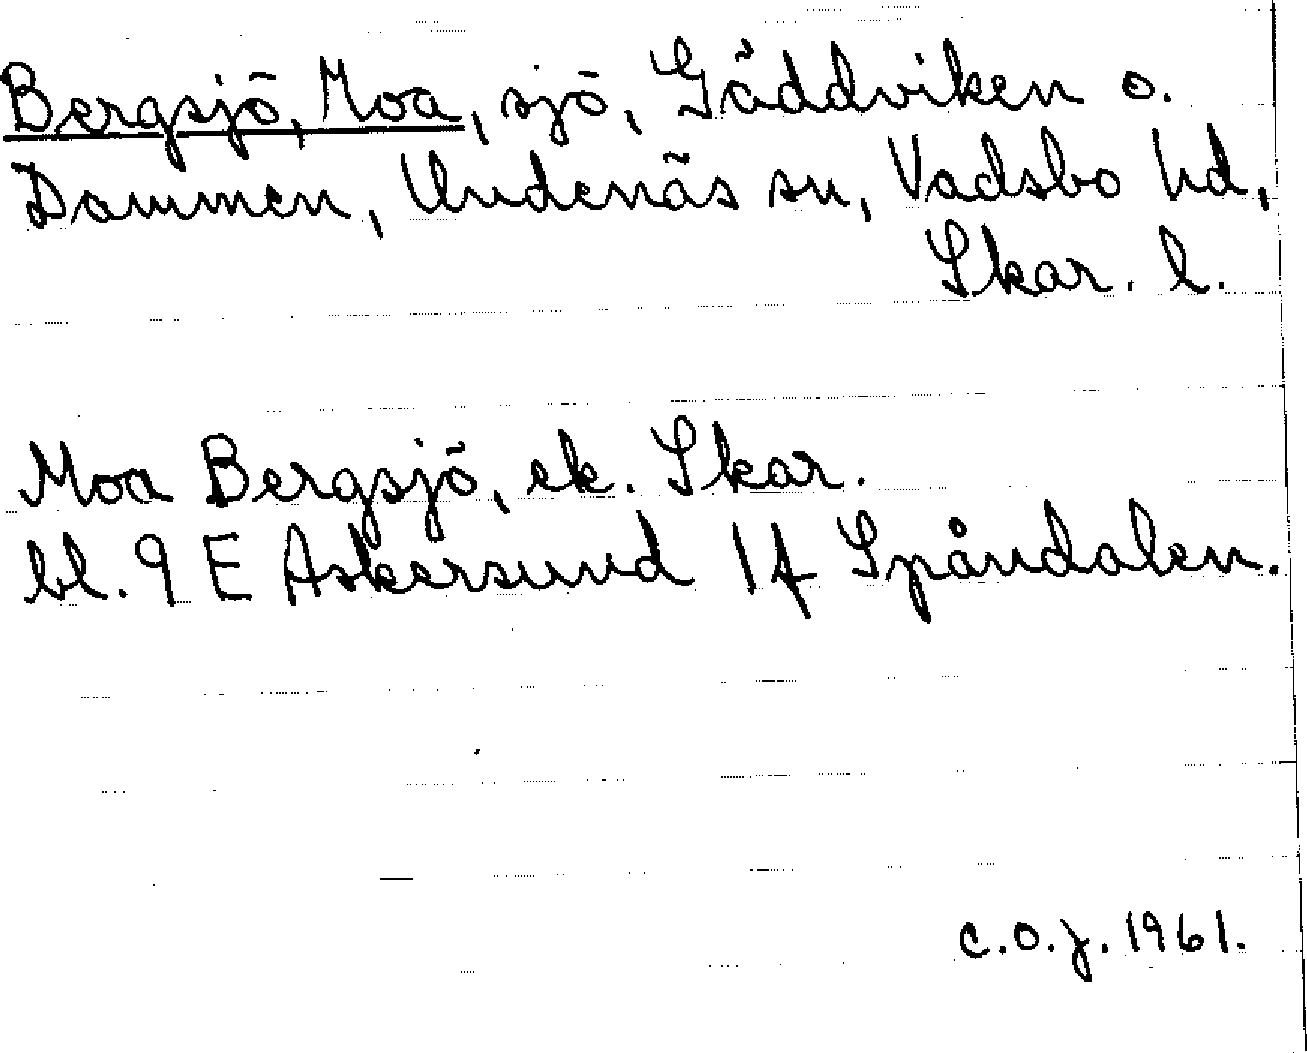 Bergsjö, Moa, sjö, Gäddviken o.
Dammen, Undenäs sn, Vadsbo hd,
Skar. l.
Moa Bergsjö, ek. Skar.
bl. 9 E Askersund 1 f Spåndalen.
C.O.J. 1961.